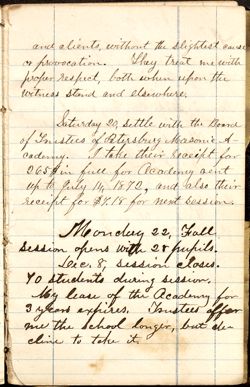 and clients, without the slightest cause
or provocation. They treat me with
proper respect, both when upon the
witness stand and elsewhere.
Saturday 20, settle with the Board
of Trustees of Petersburg Masonic A-
cademy. I take their receipt for
in full for Academy rent
up to July 14, 1872, and also their
receipt for $7.18 for next session.
Monday 22, Fall
session opens with 28 pupils.
Dec. 8, session closes.
70 students during session.
My lease of the Academy for
3 years expires. Trustees offer
me the school longer, but de-
cline to take it.